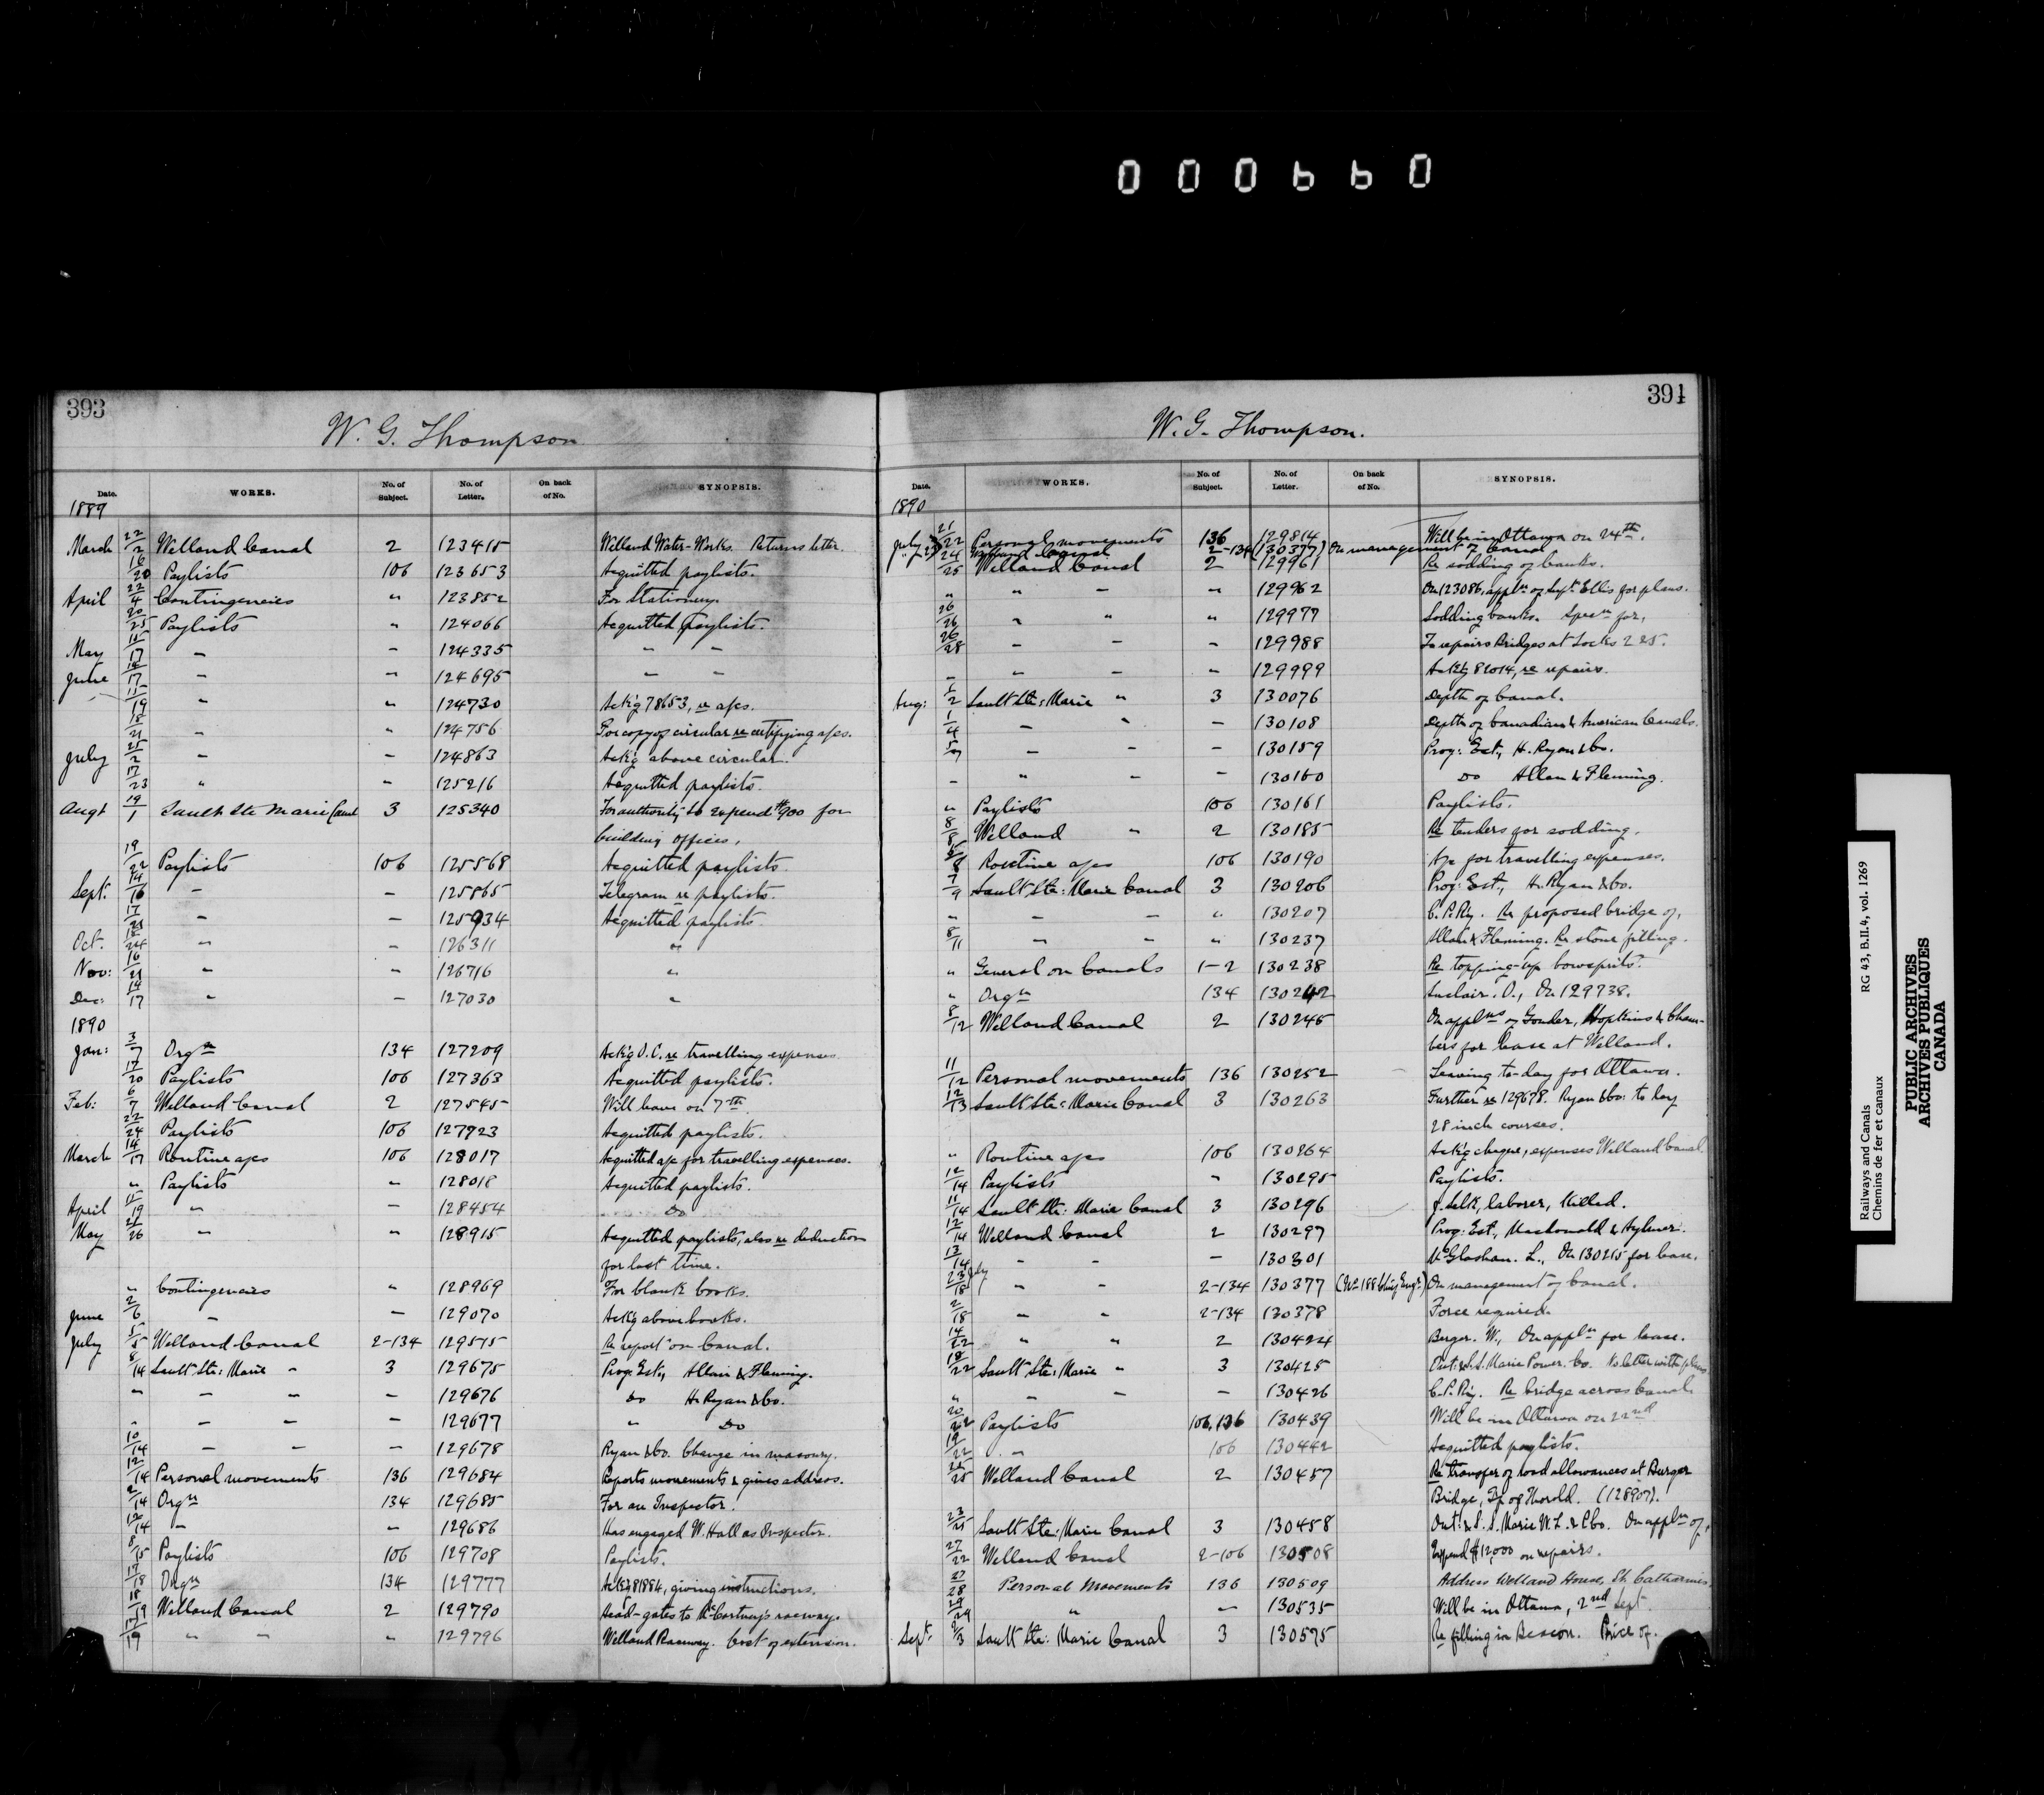 000660
393
W. G. Thompson
Date. WORKS. No. of Subject. No. of Letter. On back of No. SYNOPSIS.
1889
March 22/2 Welland Canal 2 123415 Welland Water-Works. Returns letter.
16/20 Paylists 106 123653 Acquitted paylists.
April 22/4 Contingencies " 123852 For Stationery.
20/25 Paylists " 124066 Acquitted paylists.
May 15/17 " " 124335 " "
June 14/17 " " 124695 " "
15/19 " " 124730 Ack'g 78653, re a/cs.
18/21 " " 124756 For copy of circular re certifying a/cs.
July 25/2 " " 124863 Ack'g above circular.
17/23 " " 125216 Acquitted paylists.
Augt 19/1 Sault Ste Marie Canal 3 125340 For authority to expend $900 for
building offices.
19/22 Paylists 106 125568 Acquitted paylists.
Sept. 14/16 " " 125865 Telegram re paylists.
17/21 " " 125934 Acquitted paylists.
Oct. 18/24 " " 126311 "
Nov: 16/21 " " 126716 "
Dec: 14/17 " " 127030 "
1890
Jan: 3/7 Orgn 134 127209 Ack'g O.C. re travelling expenses.
17/20 Paylists 106 127363 Acquitted paylists.
Feb: 6/7 Welland Canal 2 127545 Will leave on 7th.
22/24 Paylists 106 127923 Acquitted paylists.
March 14/17 Routine a/cs 106 128017 Acquitted a/c for travelling expenses.
" Paylists " 128018 Acquitted paylists.
April 15/19 " " 128454 Do
May 21/26 " " 128915 Acquitted paylists, also re deduction
for lost time.
" Contingencies " 128969 For blank books.
June 2/6 " " 129070 Ack'g above books.
July 5/5 Welland Canal 2-134 129515 Re report on Canal.
8/14 Sault Ste: Marie " 3 129675 Prog: Est., Allan & Fleming.
" " " " 129676 Do H. Ryan & Co.
" " " " 129677 " Do
10/14 " " " 129678 Ryan & Co. Change in masonry.
12/14 Personal movements 136 129684 Reports movements & gives address.
2/14 Orgn 134 129685 For an Inspector.
12/14 " " 129686 Has engaged W. Hall as Inspector.
8/15 Paylists 106 129708 Paylists.
17/18 Orgn 134 129777 Ack'g 81884, giving instructions.
18/19 Welland Canal 2 129790 Head-gates to McCartney's raceway.
17/19 " " " 129796 Welland Raceway. Cost of extension.
394
W. G. Thompson.
Date. WORKS. No. of Subject. No. of Letter. On back of No. SYNOPSIS.
1890
July 21/22 Personal movements 136 129814 Will be in Ottawa on 24th.
" 23 Welland Canal 2-134 (130377) On management of Canal
24/25 Welland Canal 2 129961 Re sodding of banks.
" " " " 129962 On 123086, appln of Supt. Ellis for plans.
26/26 " " " 129977 Sodding banks. Specn for,
26/28 " " " 129988 To repairs Bridges at Locks 2 & 5.
" " " " 129999 Ack'g 82014, re repairs.
Aug: 1/2 Sault Ste: Marie " 3 130076 Depth of Canal.
1/4 " " " 130108 Depth of Canadian & American Canals.
5/7 " " " 130159 Prog: Est., H. Ryan & Co.
" " " " 130160 Do Allan & Fleming.
" Paylists 106 130161 Paylists.
8/8 Welland " 2 130185 Re tenders for sodding.
8 Routine a/cs 106 130190 A/c for travelling expenses.
7/9 Sault Ste: Marie Canal 3 130206 Prog: Est., H. Ryan & Co.
" " " " 130207 C.P.Ry. Re proposed bridge of,
8/11 " " " 130237 Allan & Fleming. Re stone filling.
" General on Canals 1-2 130238 Re topping-up bowsprits.
" Orgn 134 130242 Sinclair. D., On 129738.
8/12 Welland Canal 2 130245 On applns of Gonder, Hopkins & Cham-
bers for lease at Welland.
11/12 Personal movements 136 130252 Leaving to-day for Ottawa.
12/13 Sault Ste: Marie Canal 3 130263 Further re 129678. Ryan & Co: to lay
28 inch courses.
" Routine a/cs 106 130264 Ack'g cheque, expenses Welland Canal.
12/14 Paylists " 130295 Paylists.
11/14 Sault Ste: Marie Canal 3 130296 J. Selk, laborer, killed.
12/14 Welland Canal 2 130297 Prog: Est., Macdonald & Aylmer.
13/14 " " " 130301 McGlashan. L., On 130215 for lease.
23 July/18 " " 2-134 130377 (No 188 Chief Engr.) On management of Canal.
2/18 " " 2-134 130378 Force required.
14/22 " " 2 130424 Berger. W., On appln for lease.
18/22 Sault Ste: Marie " 3 130425 Ont: & S.S. Marie Power. Co. No letter with plans
" " " " 130426 C.P.Ry. Re bridge across Canal.
20/22 Paylists 106,136 130439 Will be in Ottawa on 22nd
19/22 " 106 130442 Acquitted paylists.
25 Welland Canal 2 130457 Re transfer of road allowances at Burgar
Bridge, Tp of Thorold. (128907).
23/25 Sault Ste: Marie Canal 3 130458 Ont: & S. S. Marie W. L. & P Co. On appln of,
27/22 Welland Canal 2-106 130508 Expend $12,000 on repairs.
27/28 Personal Movements 136 130509 Address Welland House, St. Catharines.
29/29 " " 130535 Will be in Ottawa, 2nd Sept.
Sept. 2/3 Sault Ste: Marie Canal 3 130575 Re filling in Beacon. Price of.
Railways and Canals RG 43, B.II.4, vol. 1269
Chemins de fer et canaux
PUBLIC ARCHIVES
ARCHIVES PUBLIQUES
CANADA